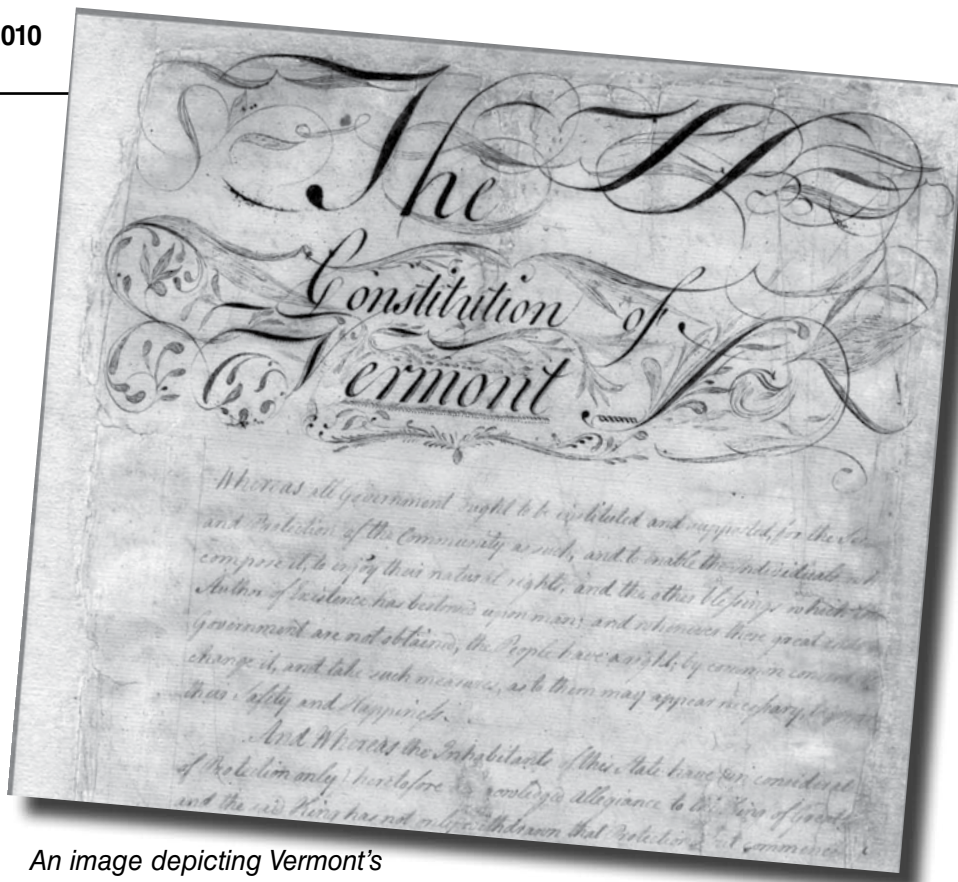 010
The
Constitution of
Vermont
Whereas all Government ought to be instituted and supported, for the
and Protection of the Community as such, and to enable the Individuals
compose it, to enjoy their natural rights, and the other blessings which
Author of Existence has bestowed upon man; and whenever these great
Government are not obtained, the People have a right, by common
change it, and take such measures, as to them may appear necessary,
their Safety and Happiness.
And Whereas the Inhabitants of this State have considerat
of Protection only) heretofore acknowledged allegiance to the King of
and the said King has not only withdrawn that Protection, but commence
An image depicting Vermont's